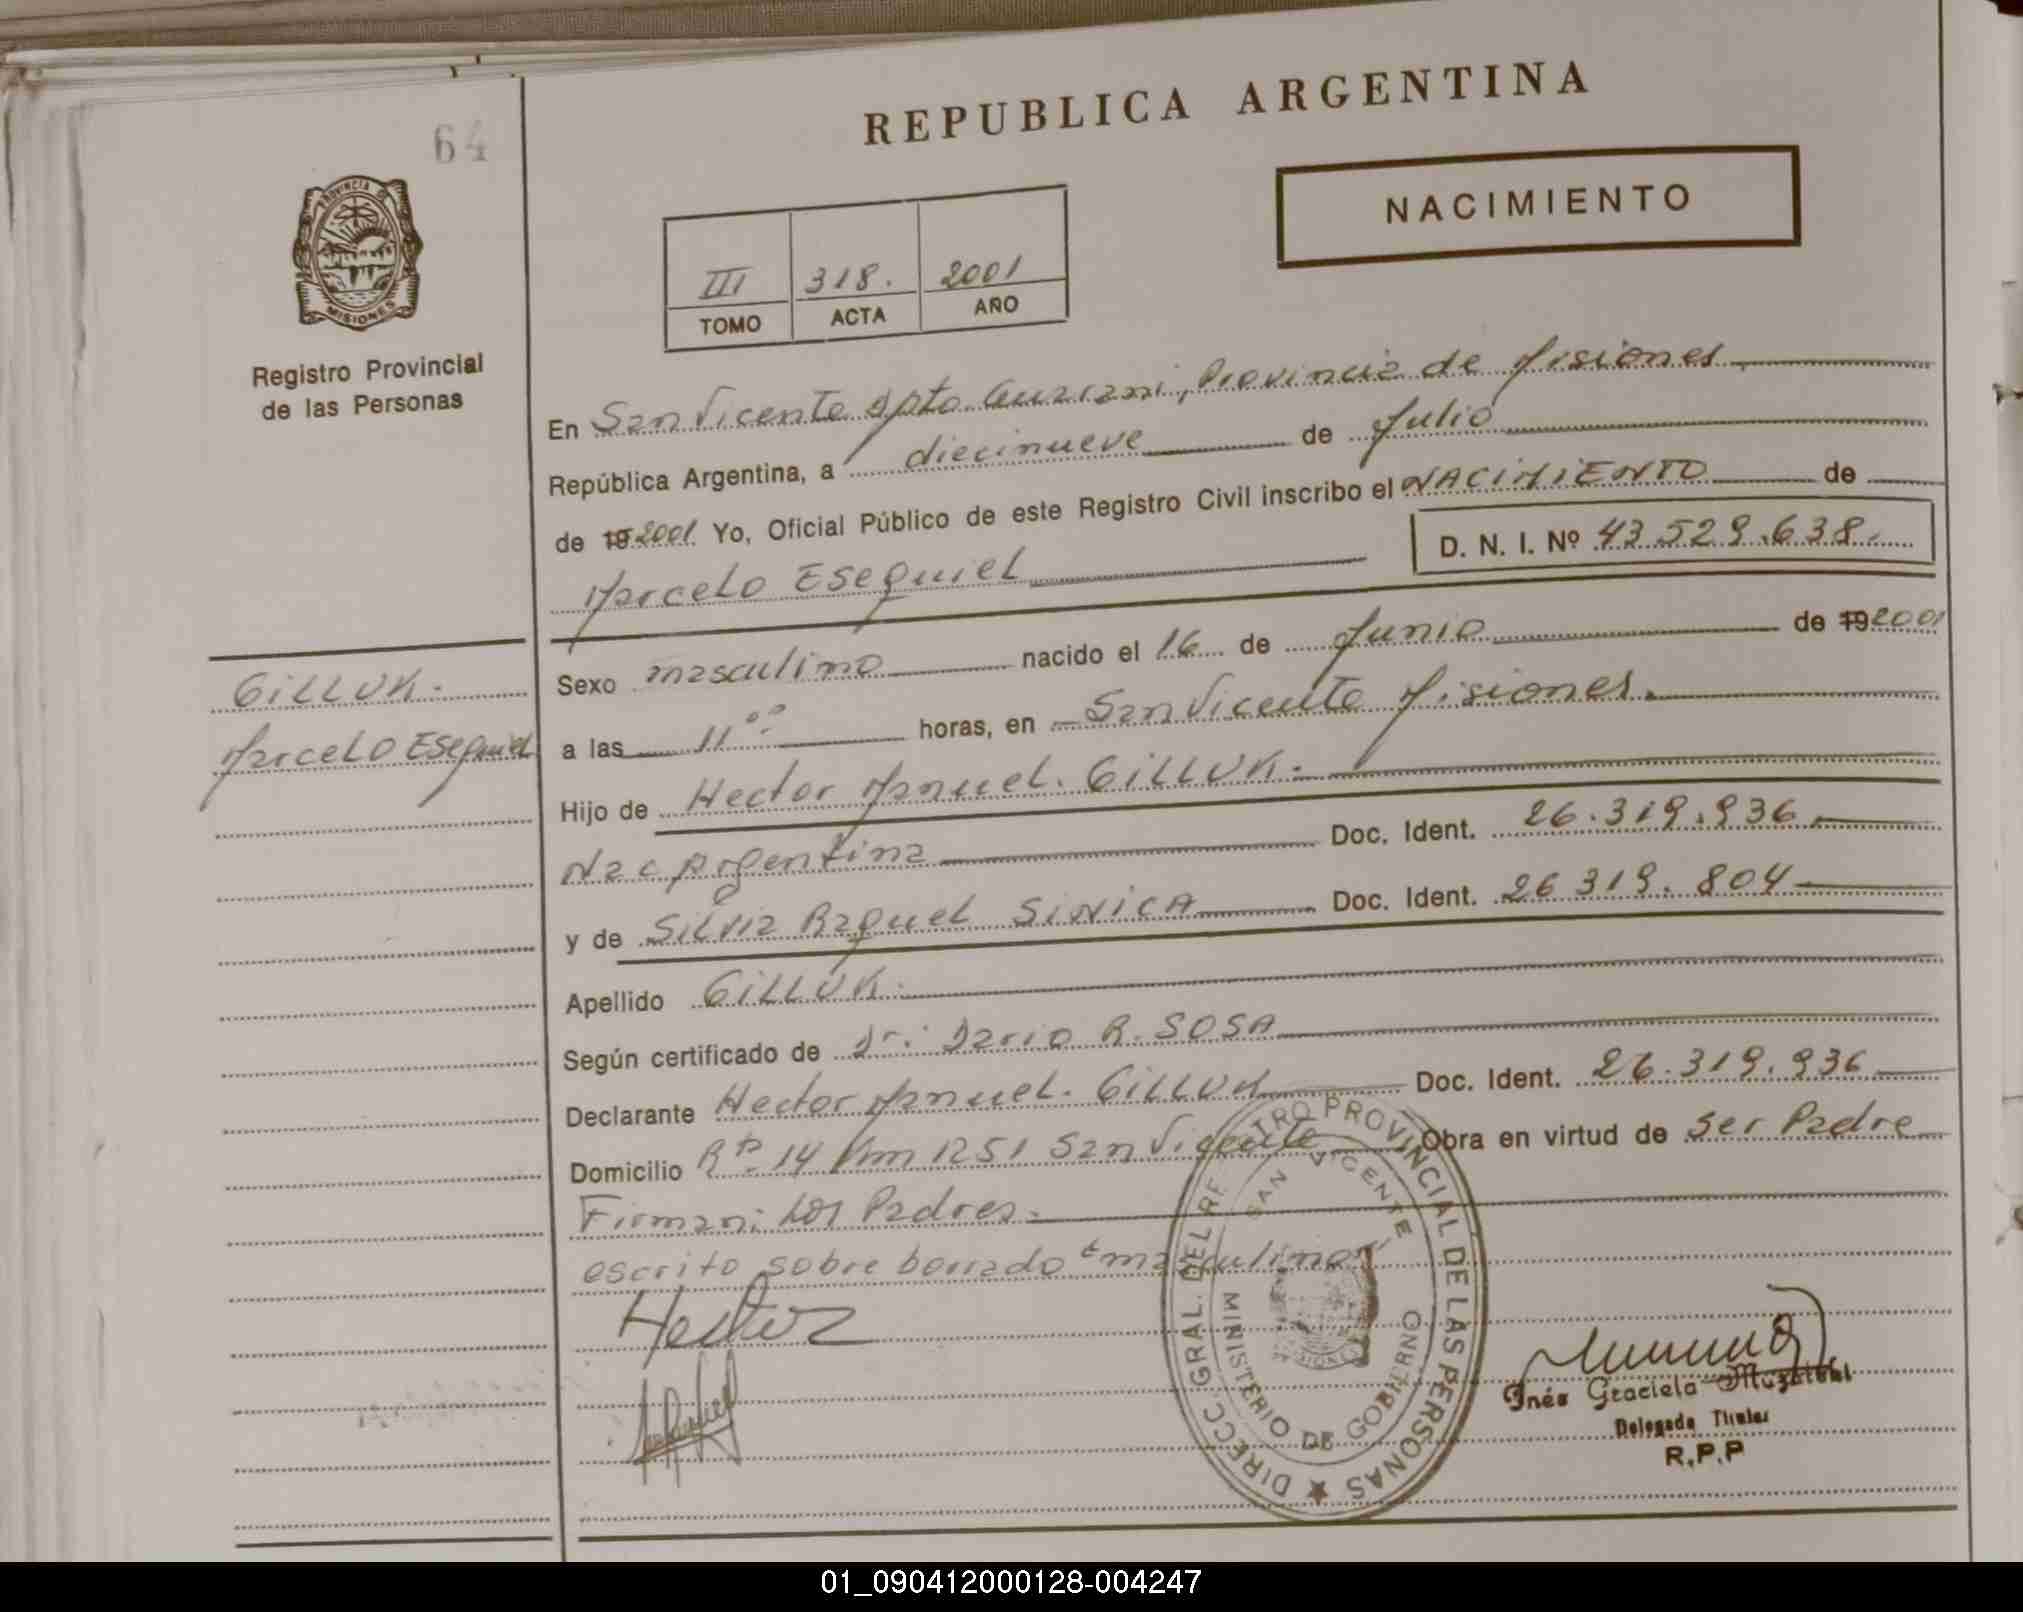 64
REPUBLICA ARGENTINA
NACIMIENTO
PROVINCIA DE
MISIONES
Registro Provincial
de las Personas
III 318. 2001
TOMO ACTA AÑO
En San Vicente Dpto Guarani, Provincia de Misiones
República Argentina, a diecinueve de Julio
de 19 2001 Yo, Oficial Público de este Registro Civil inscribo el NACIMIENTO de
Marcelo Esequiel D. N. I. Nº 43.529.638.
GILLUK.
Marcelo Esequiel
Sexo masculino nacido el 16 de Junio de 19 2001
a las 11°° horas, en San Vicente Misiones.
Hijo de Hector Manuel. GILLUK.
Nac Argentina Doc. Ident. 26.319.936
y de Silvia Raquel SINICA Doc. Ident. 26 319.804
Apellido GILLUK.
Según certificado de Dr. Dario R. SOSA
Declarante Hector Manuel. GILLUK Doc. Ident. 26.319.936
Domicilio Rta. 14 Km 1251 San Vicente Obra en virtud de ser Padre
Firman: los Padres.
escrito sobre borrado "masculino"
Hector
DIRECC. GRAL. DEL RE TRO PROVINCIAL DE LAS PERSONAS
SAN VICENTE
MINISTERIO DE GOBIERNO
Inés Graciela
Delegada Titular
R.P.P
01_090412000128-004247